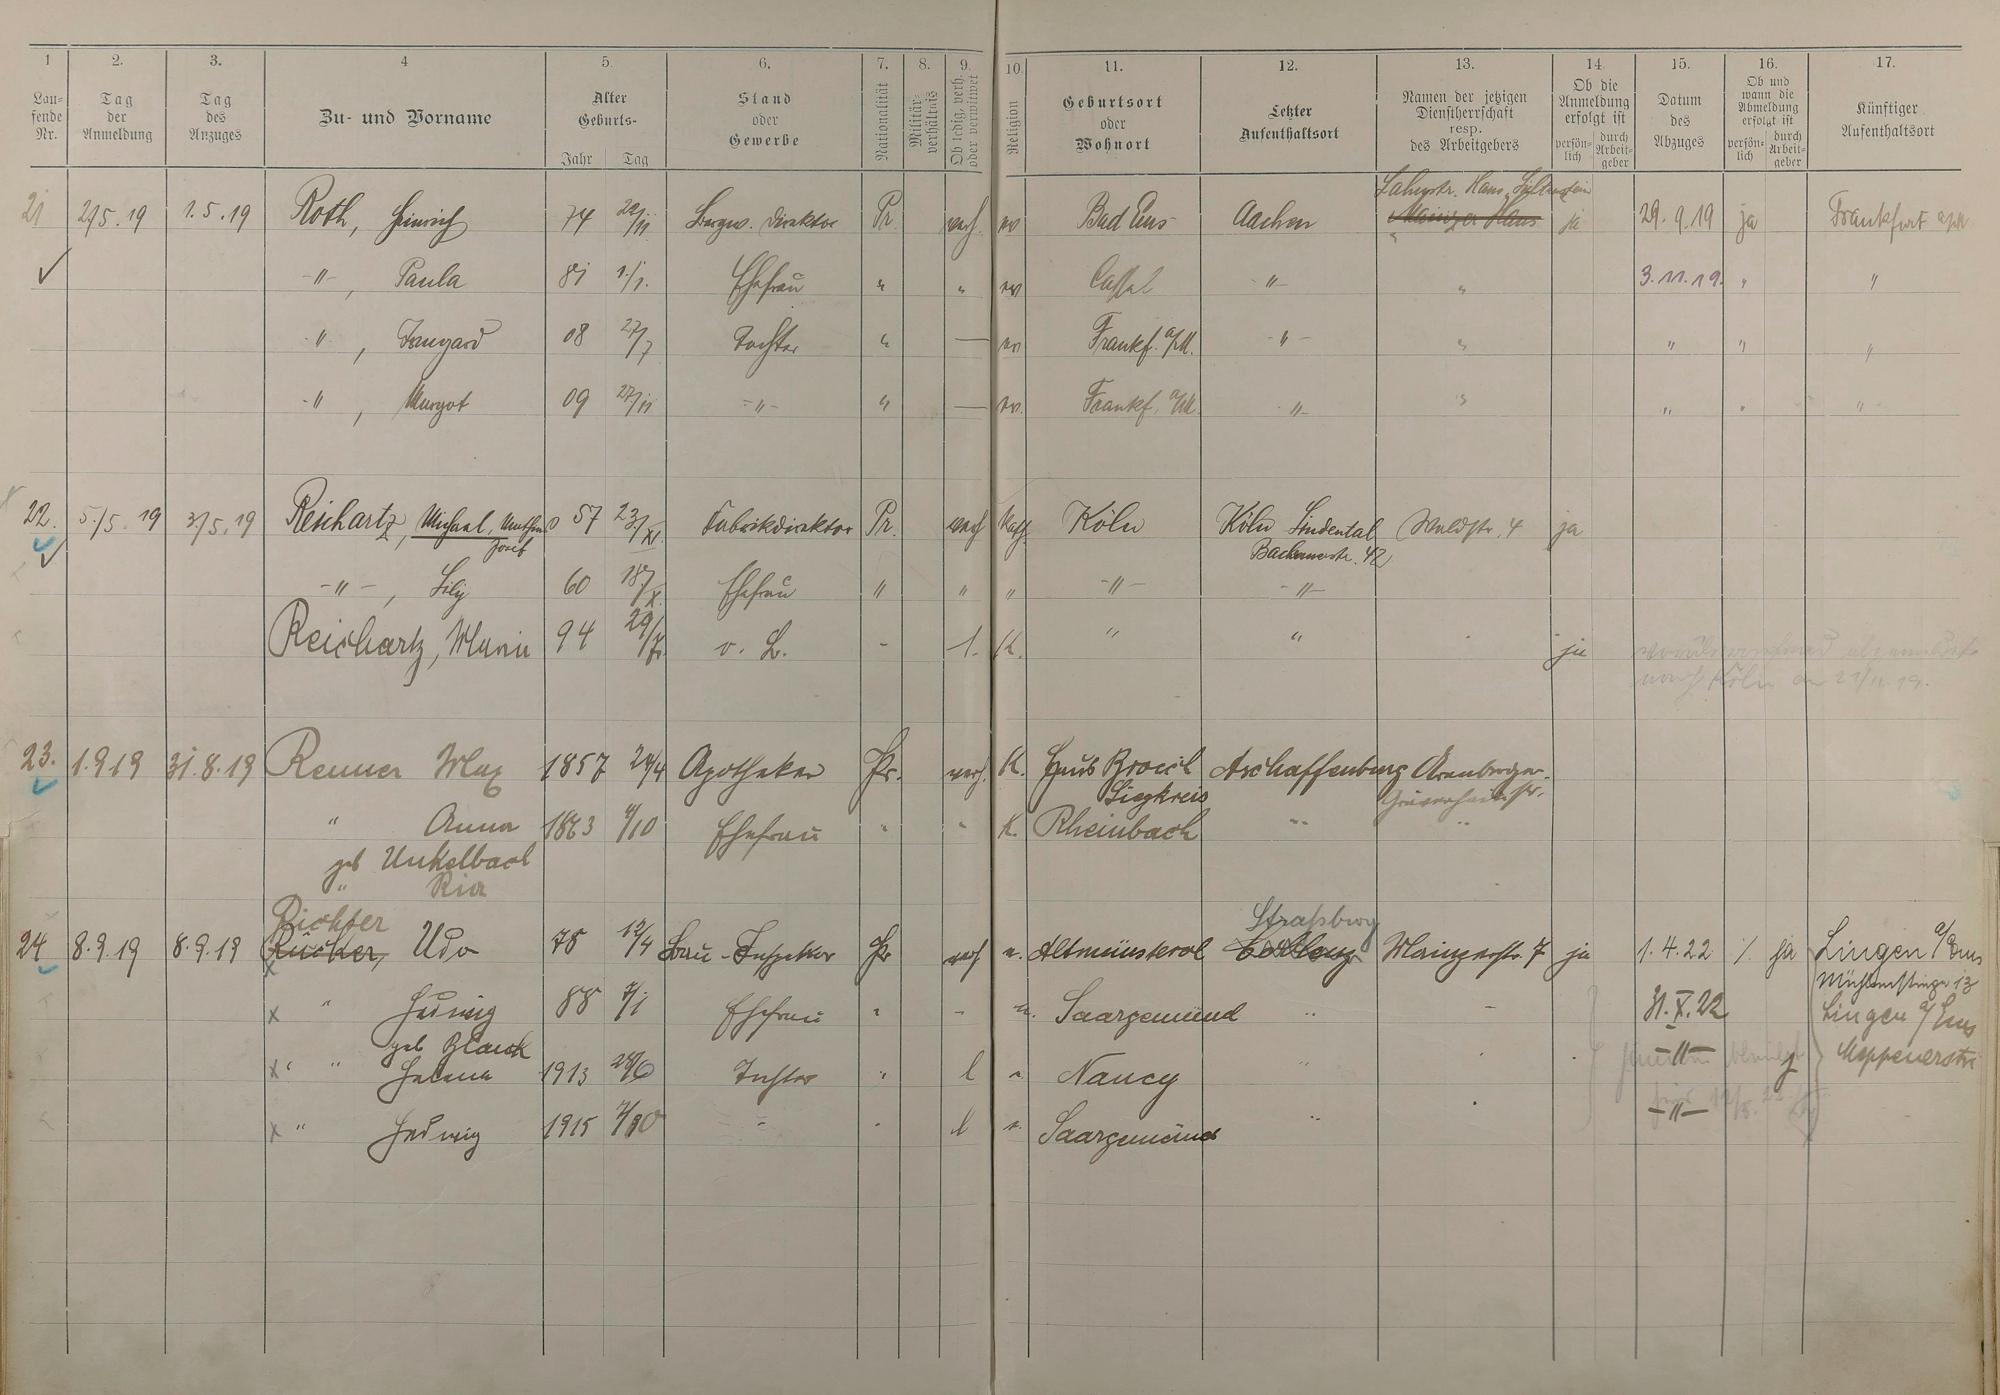 1 2. 3. 4 5. 6. 7. 8. 9. 10. 11. 12. 13. 14. 15. 16. 17.
Lau-
fende
Nr.
Tag
der
Anmeldung
Tag
des
Anzuges
Zu- und Vorname
Alter
Geburts-
Jahr Tag
Stand
oder
Gewerbe
Nationalität
Militär-
verhältnis
Ob ledig, verh.
oder verwitwet
Religion
Geburtsort
oder
Wohnort
Letzter
Aufenthaltsort
Namen der jetzigen
Dienstherrschaft
resp.
des Arbeitgebers
Ob die
Anmeldung
erfolgt ist
persön-
lich
durch
Arbeit-
geber
Datum
des
Abzuges
Ob und
wann die
Abmeldung
erfolgt ist
persön-
lich
durch
Arbeit-
geber
Künftiger
Aufenthaltsort
Lahnstr. Haus
21 2/5. 19 1. 5. 19 Roth, Heinrich 74 22/11 Bergw. Direktor Pr. verh. ev Bad Ems Aachen Mainzer Haus ja 29. 9. 19 ja Frankfurt a/M
-"-, Paula 81 1./1. Ehefrau " " ev Cassel -"- " 3. 11. 19. " "
-"-, Irmgard 08 27/7 Tochter " — ev Frankf. a/M. -"- " " " "
-"-, Margot 09 27/11 -"- " — ev. Frankf. a/M. " " " " "
22. 5./5. 19 3./5. 19 Reichartz, Michael, Josef 57 23/XI. Fabrikdirektor Pr. verh Kath. Köln Köln Lindental Waldstr. 4 ja
Bachemerstr. 42
-"-, Lily 60 18/X. Ehefrau " " " -"- -"-
Reichartz, Maria 94 29/7. o. B. - l. K. " " ja
nach Köln am 21/11. 19.
23. 1. 9 19 31. 8. 19 Renner Max 1857 24/4 Apotheker Pr. verh. K. Haus Broich Aschaffenburg Arenberger-
Siegkreis
" Anna 1863 4/10 Ehefrau " " K. Rheinbach " "
geb Unkelbach
" Ria
Richter Straßburg
24 8. 9. 19 8. 9. 19 Rücker, Udo 78 12/4 Bau-Inspektor Pr verh e. Altmünsterol Coblenz Mainzerstr. 7 ja 1. 4. 22 1. ja Lingen a/Ems
x " Hedwig 88 7/1 Ehefrau " - e. Saargemünd " - 31. X. 22 Lingen a/Ems
geb Blanck
x " Helene 1913 28/6 Tochter " l " Nancy " -"- Meppenerstr
x " Hedwig 1915 7/10 - l Saargemünd " -"-